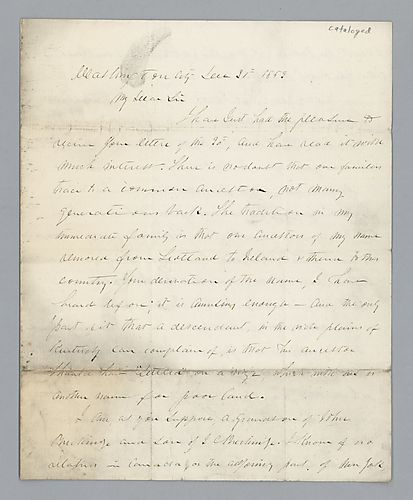 cataloged
Washington City Dec 31st 1853
My Dear Sir
I have just had the pleasure to
receive your letter of the 30th, and have read it with
much interest. There is no doubt that our families
trace to a common ancestor, not many
generations back. The tradition in my
immediate family is that our ancestors of my name
removed from Scotland to Ireland & thence to this
country. Your derivation of the name, I have
heard before; it is amusing enough — And the only
part of it that a descendant, in the rich plains of
Kentucky can complain of, is that the ancestor
should have "settled" on a ridge which with us is
another name for poor land.
I am as you suppose, a Grandson of John
Breckinridge and son of J C Breckinridge. I know of no
relations in Canada or the adjoining part of New York